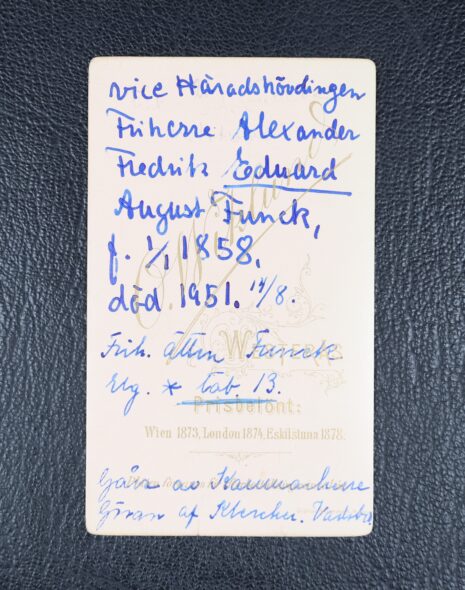 vice Häradshövdingen
Friherre Alexander
Fredrik Eduard
August Funck,
f. 1/1 1858,
död 1951. 14/8.
O. Wiklund
Frih. ätten Funck
WESTERÅS
Elg. * tab. 13.
Prisbelönt:
Wien 1873, London 1874, Eskilstuna 1878.
Gåva av Kammarherre
Göran af Klercker.